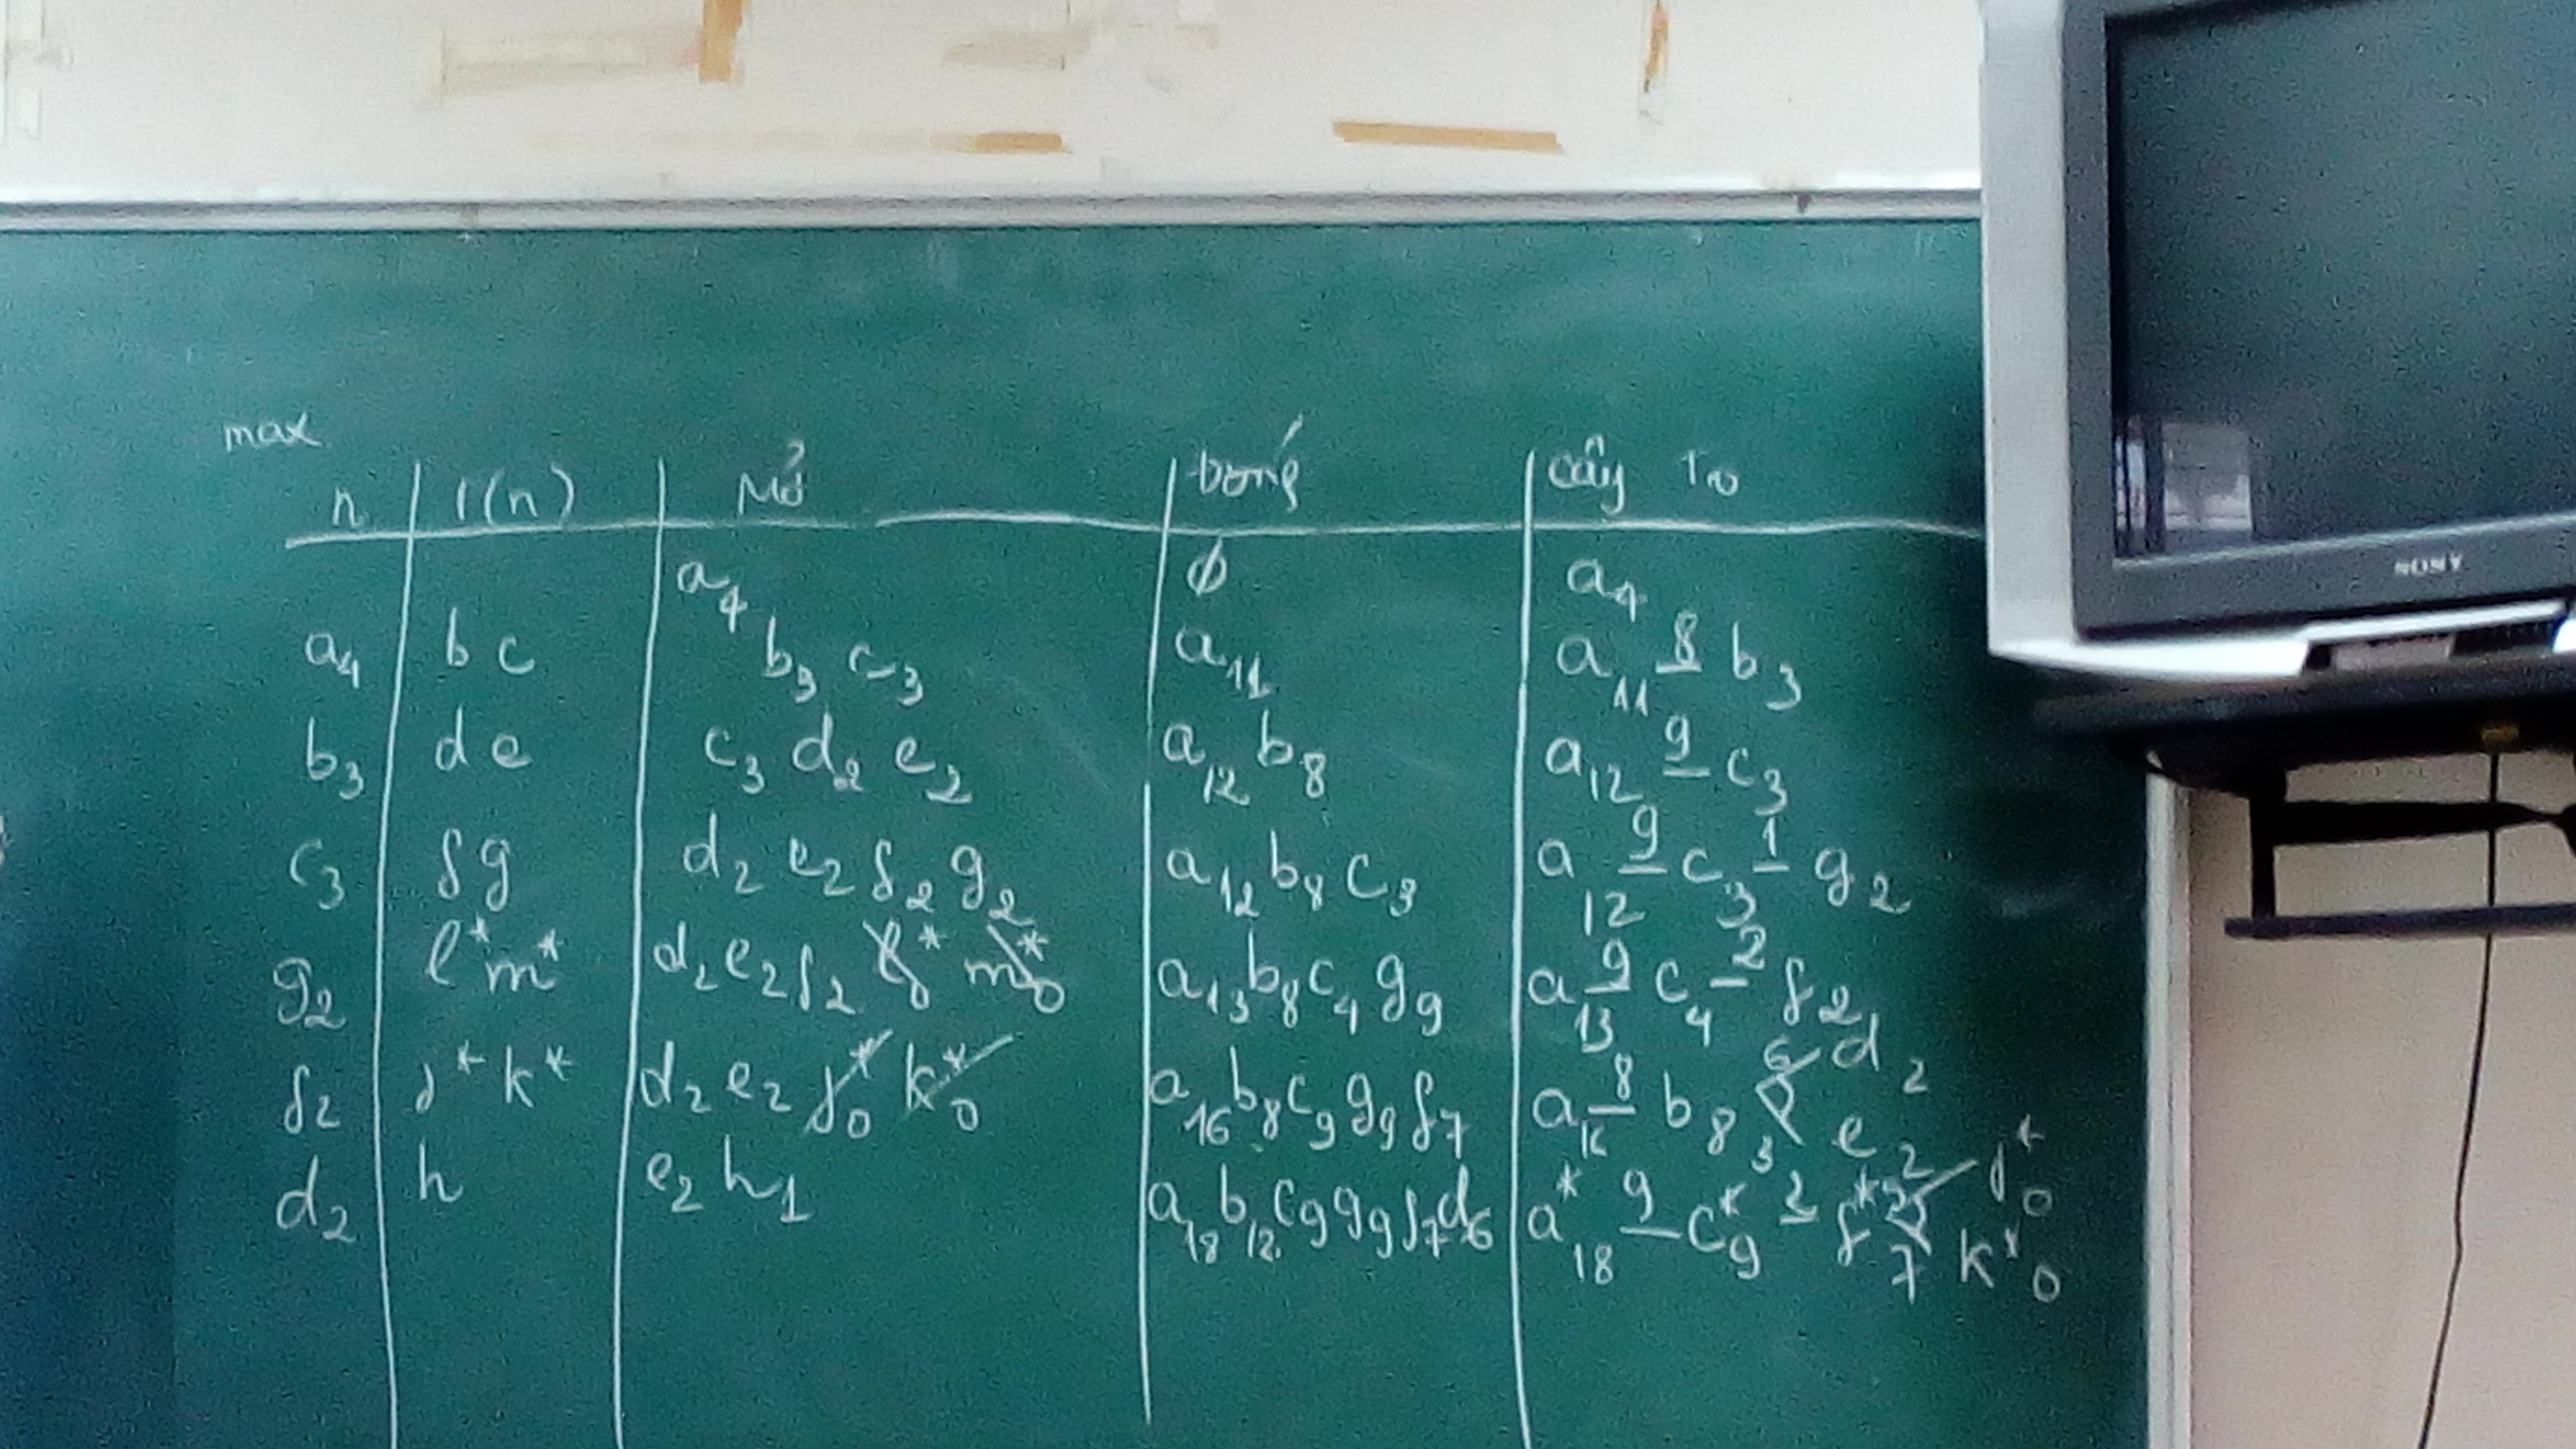 max
n Γ(n) Mở Đóng cây To
a₄ ϕ a₄
a₄ b c b₃ c₃ a₁₁ a₁₁ 8 b₃
b₃ d e c₃ d₂ e₂ a₁₂ b₈ a₁₂ 9 c₃
c₃ f g d₂ e₂ f₂ g₂ a₁₂ b₈ c₃ a₁₂ 9 c₃ 1 g₂
g₂ l* m* d₂ e₂ f₂ l*₀ m*₀ a₁₃ b₈ c₄ g₉ a₁₃ 9 c₄ 2 f₂
f₂ j* k* d₂ e₂ j*₀ k*₀ a₁₆ b₈ c₉ g₉ f₇ a₁₆ 8 b₈ 6 d₂ 3 e₂
d₂ h e₂ h₁ a₁₈ b₁₂ c₉ g₉ f₇ d₆ a*₁₈ 9 c*₉ 2 f*₇ j*₀ k*₀
SONY